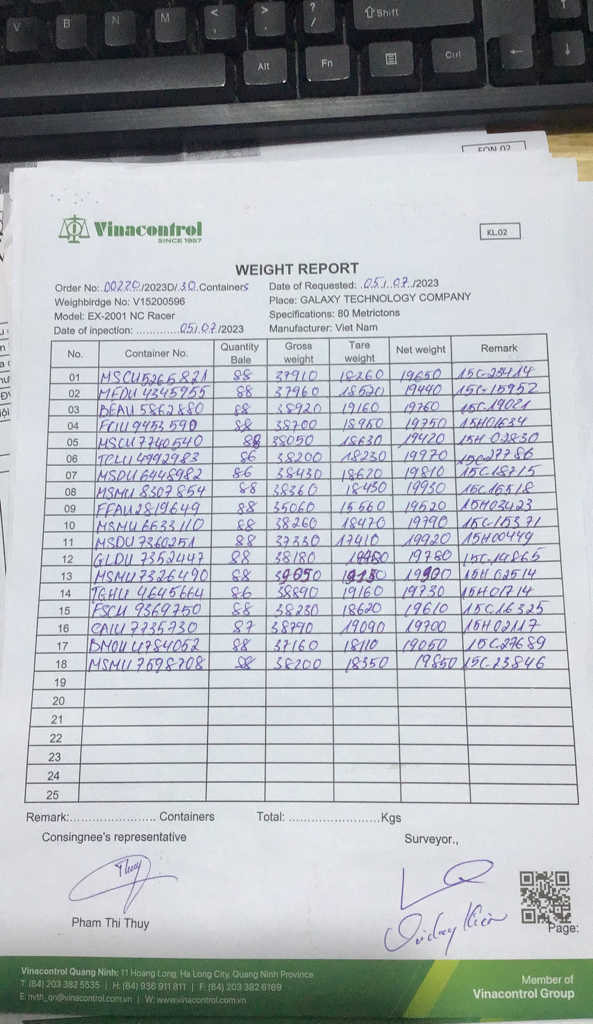 V
B
N
M
<
>
?
/
Shift
Alt
Fn
Ctrl
FON.02
Vinacontrol
SINCE 1957
KL.02
WEIGHT REPORT
Order No: /2023D/.30.Containers Date of Requested: .05./..07./2023
Weighbirdge No: V15200596 Place: GALAXY TECHNOLOGY COMPANY
Model: EX-2001 NC Racer Specifications: 80 Metrictons
Date of inpection: ..............05./.07./2023 Manufacturer: Viet Nam
No. Container No. Quantity Bale Gross weight Tare weight Net weight Remark
01 MSCU5265821 88 37910 18260 19650 15C-23414
02 MEDU 4345755 88 37960 18520 19440 15C-15952
03 BEAU 5862880 88 38920 19160 19760 15C-19021
04 FCIU 9453590 88 38700 18950 19750 15H01634
05 MSCU 7740540 88 38050 18630 19420 15H-02830
06 TCLU 4992983 86 38200 18230 19970 15C27786
07 MSDU 6448982 86 38430 18620 19810 15C18715
08 MSMU 8307854 88 38360 18430 19930 15C16518
09 FFAU 2819649 88 35060 15560 19520 15H03423
10 MSMU 6633110 88 38260 18470 19790 15C15371
11 MSDU 7360251 88 37330 17410 19920 15H00449
12 GLDU 7352447 88 38180 19780 15C14865
13 MSMU 7326490 88 39050 19150 19900 15H 02514
14 TGHU 4645664 86 38890 19160 19730 15H01714
15 FSCU 9369750 88 38230 18620 19610 15C16325
16 CAIU 7735730 87 38790 19090 19700 15H02117
17 BMOU 4784052 88 37160 18110 19050 15C27689
18 MSMU 7598708 88 38200 18350 19850 15C-23846
19
20
21
22
23
24
25
Remark:....................... Containers Total: ........................Kgs
Consingnee's representative Surveyor.,
Thuy
Pham Thi Thuy
Page:
Vinacontrol Quang Ninh: 11 Hoang Long, Ha Long City, Quang Ninh Province
T: (84) 203 382 5535 | H: (84) 936 911 811 | F: (84) 203 382 6169
E: nvth_qn@vinacontrol.com.vn | W: www.vinacontrol.com.vn
Member of
Vinacontrol Group